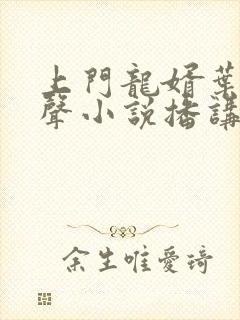 上門龍婿葉
聲小說播講
余生唯愛琦